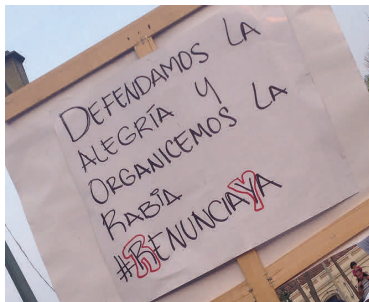 DEFENDAMOS LA
ALEGRÍA Y
ORGANICEMOS LA
RABIA
#RENUNCIAYA